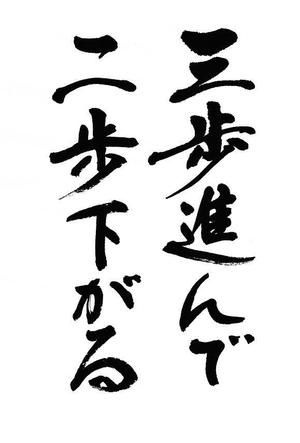 三歩進んで
二歩下がる